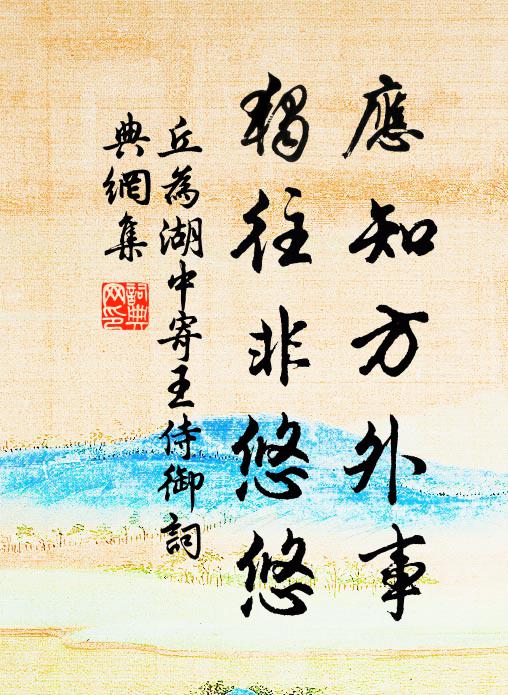 應知方外事
獨往非悠悠
丘為湖中寄王侍御詞
典網集
詞典
网印